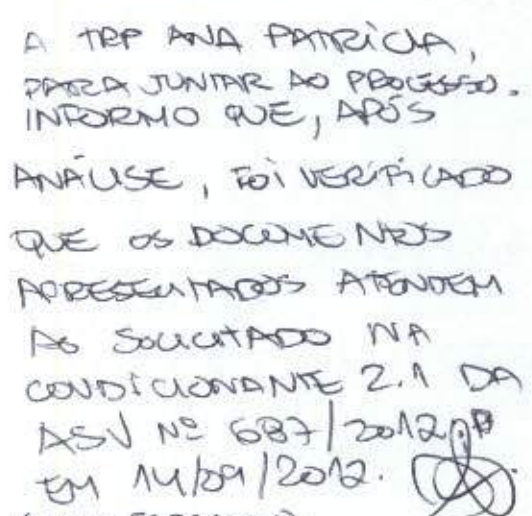 A TRP ANA PATRÍCIA,
PARA JUNTAR AO PROCESSO.
INFORMO QUE, APÓS
ANÁLISE, FOI VERIFICADO
QUE OS DOCUMENTOS
APRESENTADOS ATENDEM
AO SOLICITADO NA
CONDICIONANTE 2.1 DA
ASV Nº 687/2012.
EM 14/09/2012.